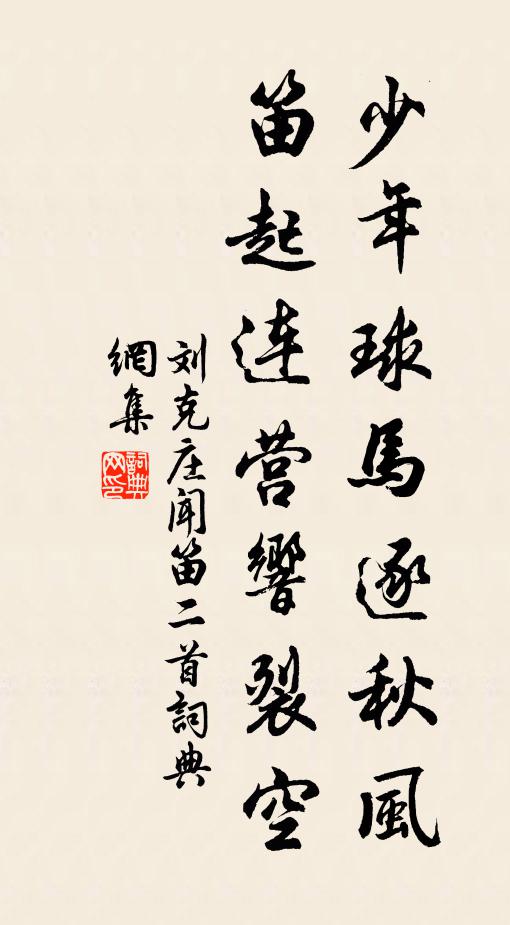 少年球馬逐秋風
笛起连营響裂空
刘克庄闻笛二首詞典
網集
詞典网印